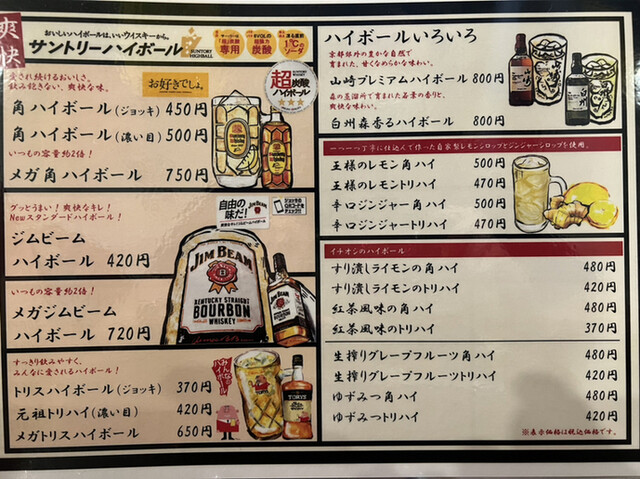 爽快
おいしいハイボールは、いいウイスキーから。
サントリーハイボール
SUNTORY HIGHBALL
専用
炭酸
愛され続けるおいしさ。
飲み飽きない、爽快な味。
お好きでしょ。
超炭酸
ハイボール
角ハイボール(ジョッキ) 450円
角ハイボール(濃い目) 500円
いつもの容量約2倍!
メガ角ハイボール 750円
グッとうまい!爽快なキレ!
Newスタンダードハイボール!
自由の味だ!
ジムビーム
ハイボール 420円
JIM BEAM
KENTUCKY STRAIGHT
BOURBON
WHISKEY
いつもの容量約2倍!
メガジムビーム
ハイボール 720円
すっきり飲みやすく、
みんなに愛されるハイボール!
トリスハイボール(ジョッキ) 370円
元祖トリハイ(濃い目) 420円
メガトリスハイボール 650円
TORYS
ハイボールいろいろ
京都郊外の豊かな自然で
育まれた、甘くなめらかな味わい。
山崎プレミアムハイボール 800円
森の蒸溜所で育まれた若葉の香りと、
爽快な味わい。
白州森香るハイボール 800円
一つ一つ丁寧に仕込んで作った自家製レモンシロップとジンジャーシロップを使用。
王様のレモン角ハイ 500円
王様のレモントリハイ 470円
辛口ジンジャー角ハイ 500円
辛口ジンジャートリハイ 470円
イチオシのハイボール
すり潰しライモンの角ハイ 480円
すり潰しライモンのトリハイ 420円
紅茶風味の角ハイ 480円
紅茶風味のトリハイ 370円
生搾りグレープフルーツ角ハイ 480円
生搾りグレープフルーツトリハイ 420円
ゆずみつ角ハイ 480円
ゆずみつトリハイ 420円
※表示価格は税込価格です。